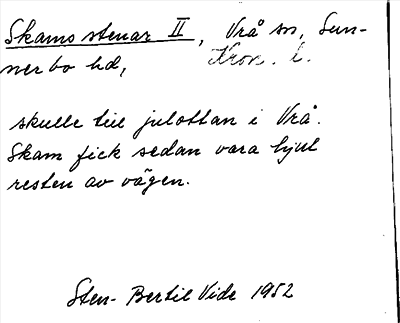 Skams stenar II, Vrå sn, Sun-
nerbo hd, Kron. l.
skulle till julottan i Vrå.
Skam fick sedan vara hjul
resten av vägen.
Sten-Bertil Vide 1952